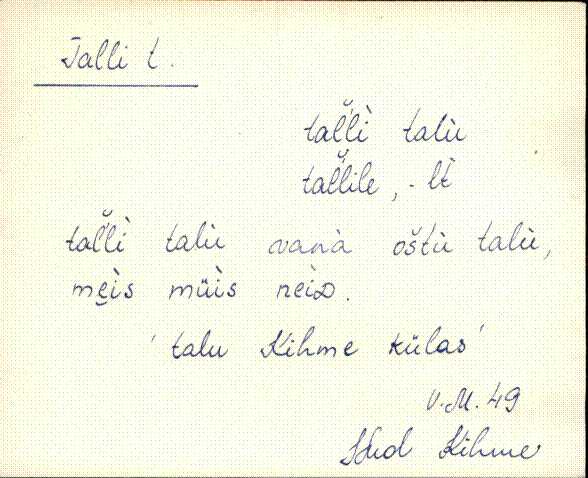 Talli t.
tal̆l̀i talù
tal̆l̀ile, -lt
tal̆l̀i talù vanà oštù talù,
mẹis müis neiᴅ.
'talu Kihme külas'
V.M. 49
Kihme